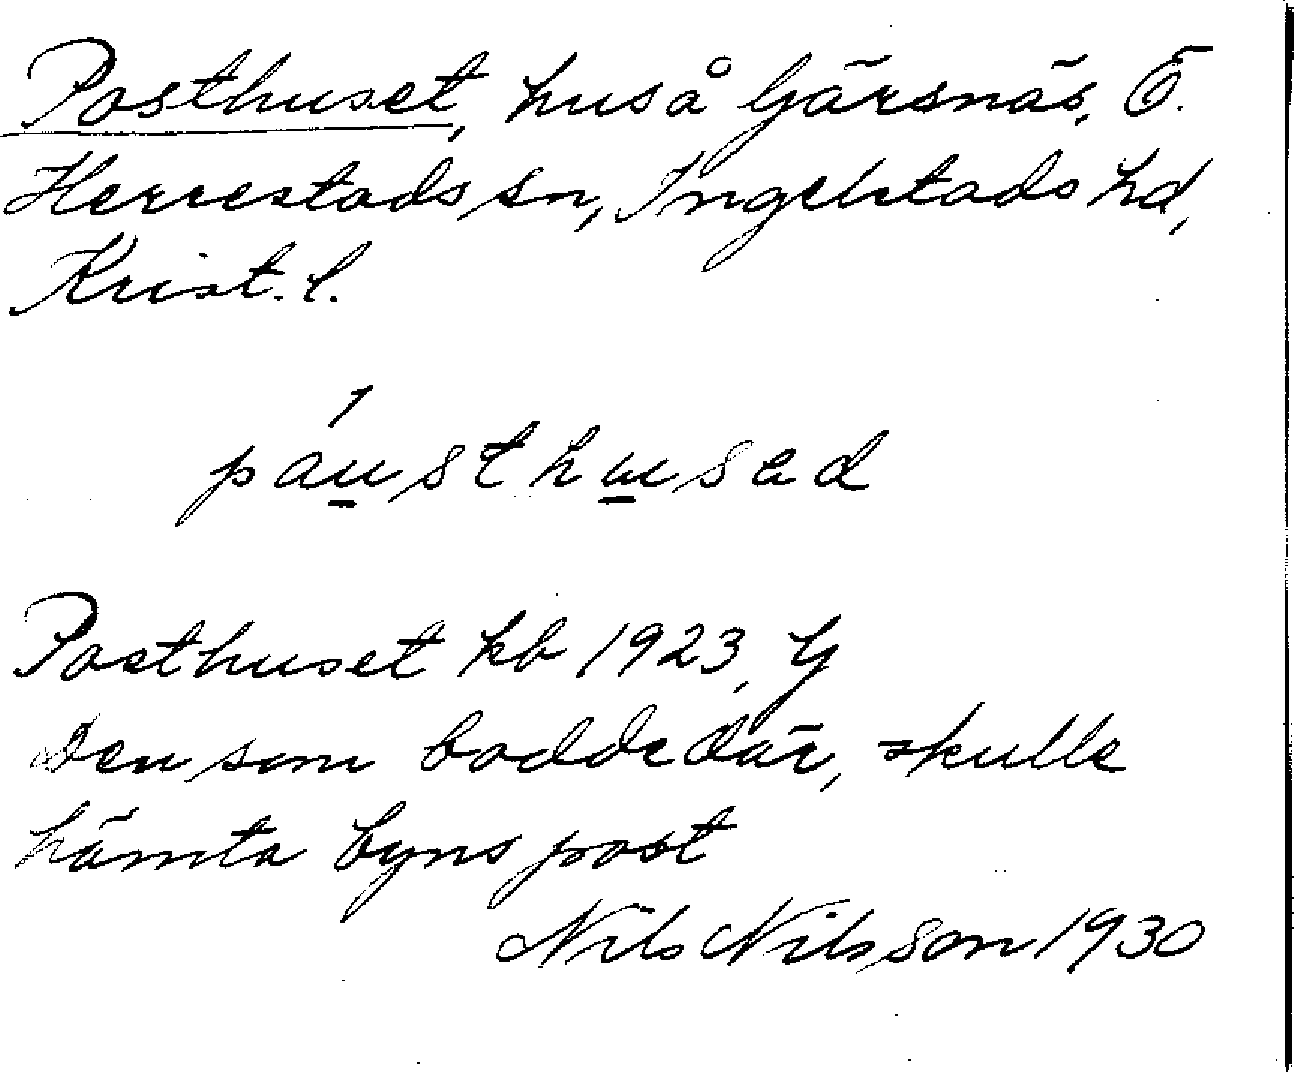 Posthuset, hus å Gärsnäs, Ö.
Herrestads sn, Ingelstads hd,
Krist. l.
páusthusad
Posthuset kb 1923, G
Den som bodde där, skulle
hämta byns post
Nils Nilsson 1930